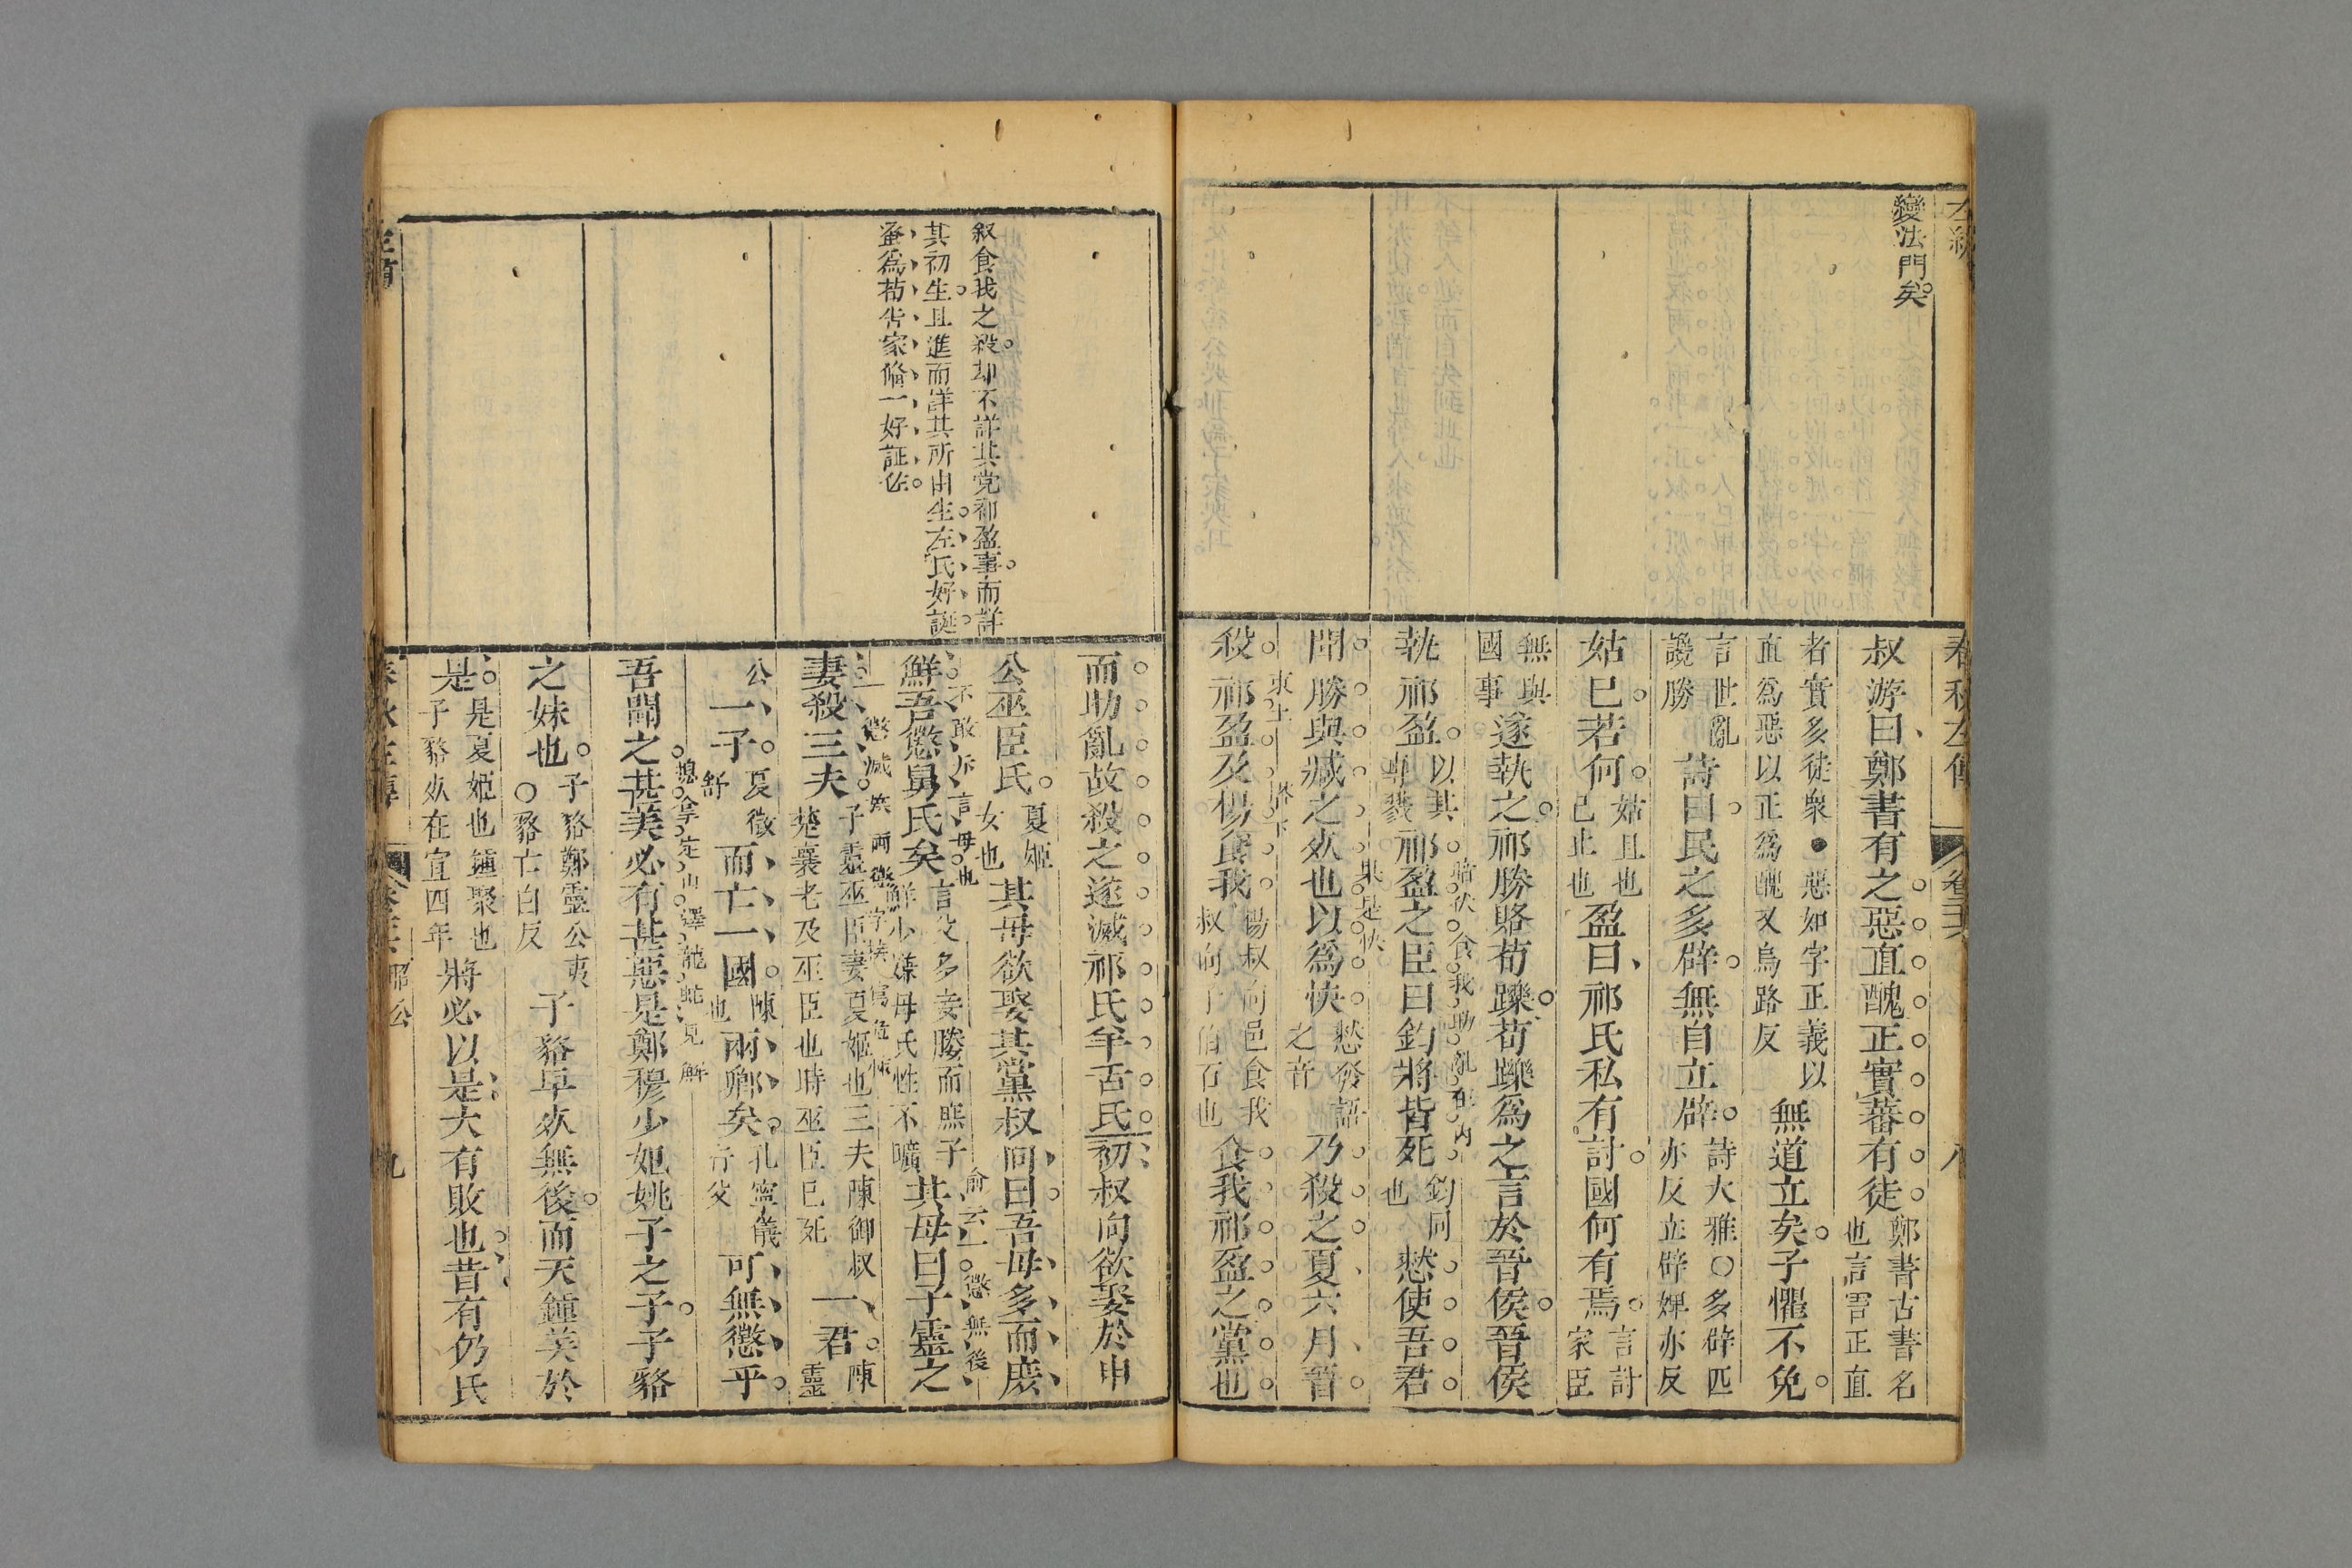 變法門矣
叔游曰鄭書有之惡直醜正實蕃有徒鄭書古書名也言害正直
者實多徒眾●惡如字正義以直爲惡以正爲醜又烏路反無道立矣子懼不免
言世亂讒勝詩曰民之多辟無自立辟詩大雅○多辟匹亦反立辟婢亦反
姑已若何姑且也已止也盈曰祁氏私有討國何有焉言討家臣
無與國事遂執之祁勝賂荀躒荀躒爲之言於晉侯晉侯
執祁盈以其專戮祁盈之臣曰鈞將皆死鈞同也慭使吾君
暗伏食我助亂在內
聞勝與臧之㱙也以爲快慭發語之音乃殺之夏六月晉
果是快
殺祁盈及楊食我楊叔向邑食我叔向子伯石也食我祁盈之黨也
束上
搭下
而助亂故殺之遂滅祁氏羊舌氏初叔向欲娶於申
公巫臣氏夏姬女也其母欲娶其黨叔向曰吾母多而庶
鮮吾懲舅氏矣言父多妾媵而庶子鮮少嫌母氏性不曠其母曰子靈之
不敢斥言母也
俞云一懲無後
妻殺三夫子靈巫臣妻夏姬也三夫陳御叔楚襄老及巫臣也時巫臣已死一君陳靈
公一子夏徵舒而亡一國陳也兩卿矣孔寧儀行父可無懲乎
吾聞之甚美必有甚惡是鄭穆少妃姚子之子子貉
之妹也子貉鄭靈公夷○貉亡白反子貉早㱙無後而天鍾美於
是是夏姬也鍾聚也子貉㱙在宣四年將必以是大有敗也昔有仍氏
叙食我之殺却不詳其党祁盈事而詳
其初生且進而詳其所由生左氏好誕
九